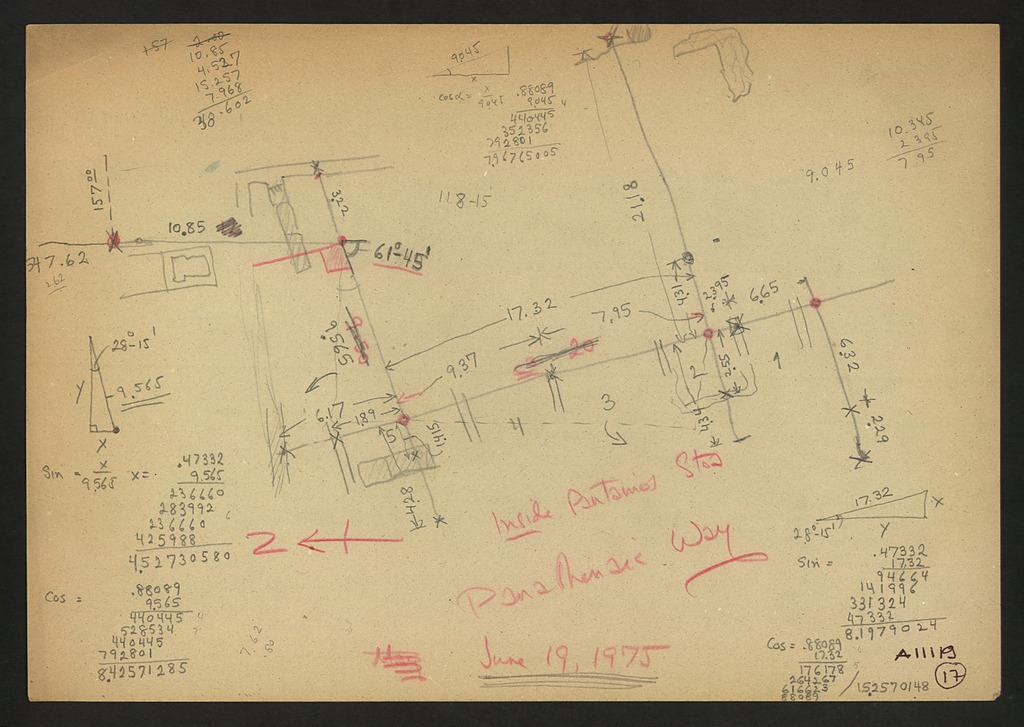 +57
10.85
4.527
15.257
7.968
38.602
9.045
x
cos α = x
9.045
.88089
9.045
440445
352356
792801
7.96765005
10.345
2.395
7.95
9.045
118-15
157.00
10.85
347.62
262
3.22
61°-45'
9.565
21.18
17.32
7.95
4.31
2.395
6.65
9.37
6.17
1.89
2.55
4.34
6.32
2.29
1
2
3
4
5
4.28
28°-15'
Y
9.565
x
Sin = x
9.565
x =
.47332
9.565
236660
283992
236660
425988
4.52730580
Cos =
.88089
9.565
440445
528534
440445
792801
8.42571285
7.62
Z
Inside Pantainos Stoa
Panathenaic Way
June 19, 1975
17.32
x
28°-15'
Y
Sin =
.47332
17.32
94664
141996
331324
47332
8.1979024
Cos = .88089
17.32
176178
264267
616623
88089
15.2570148
17